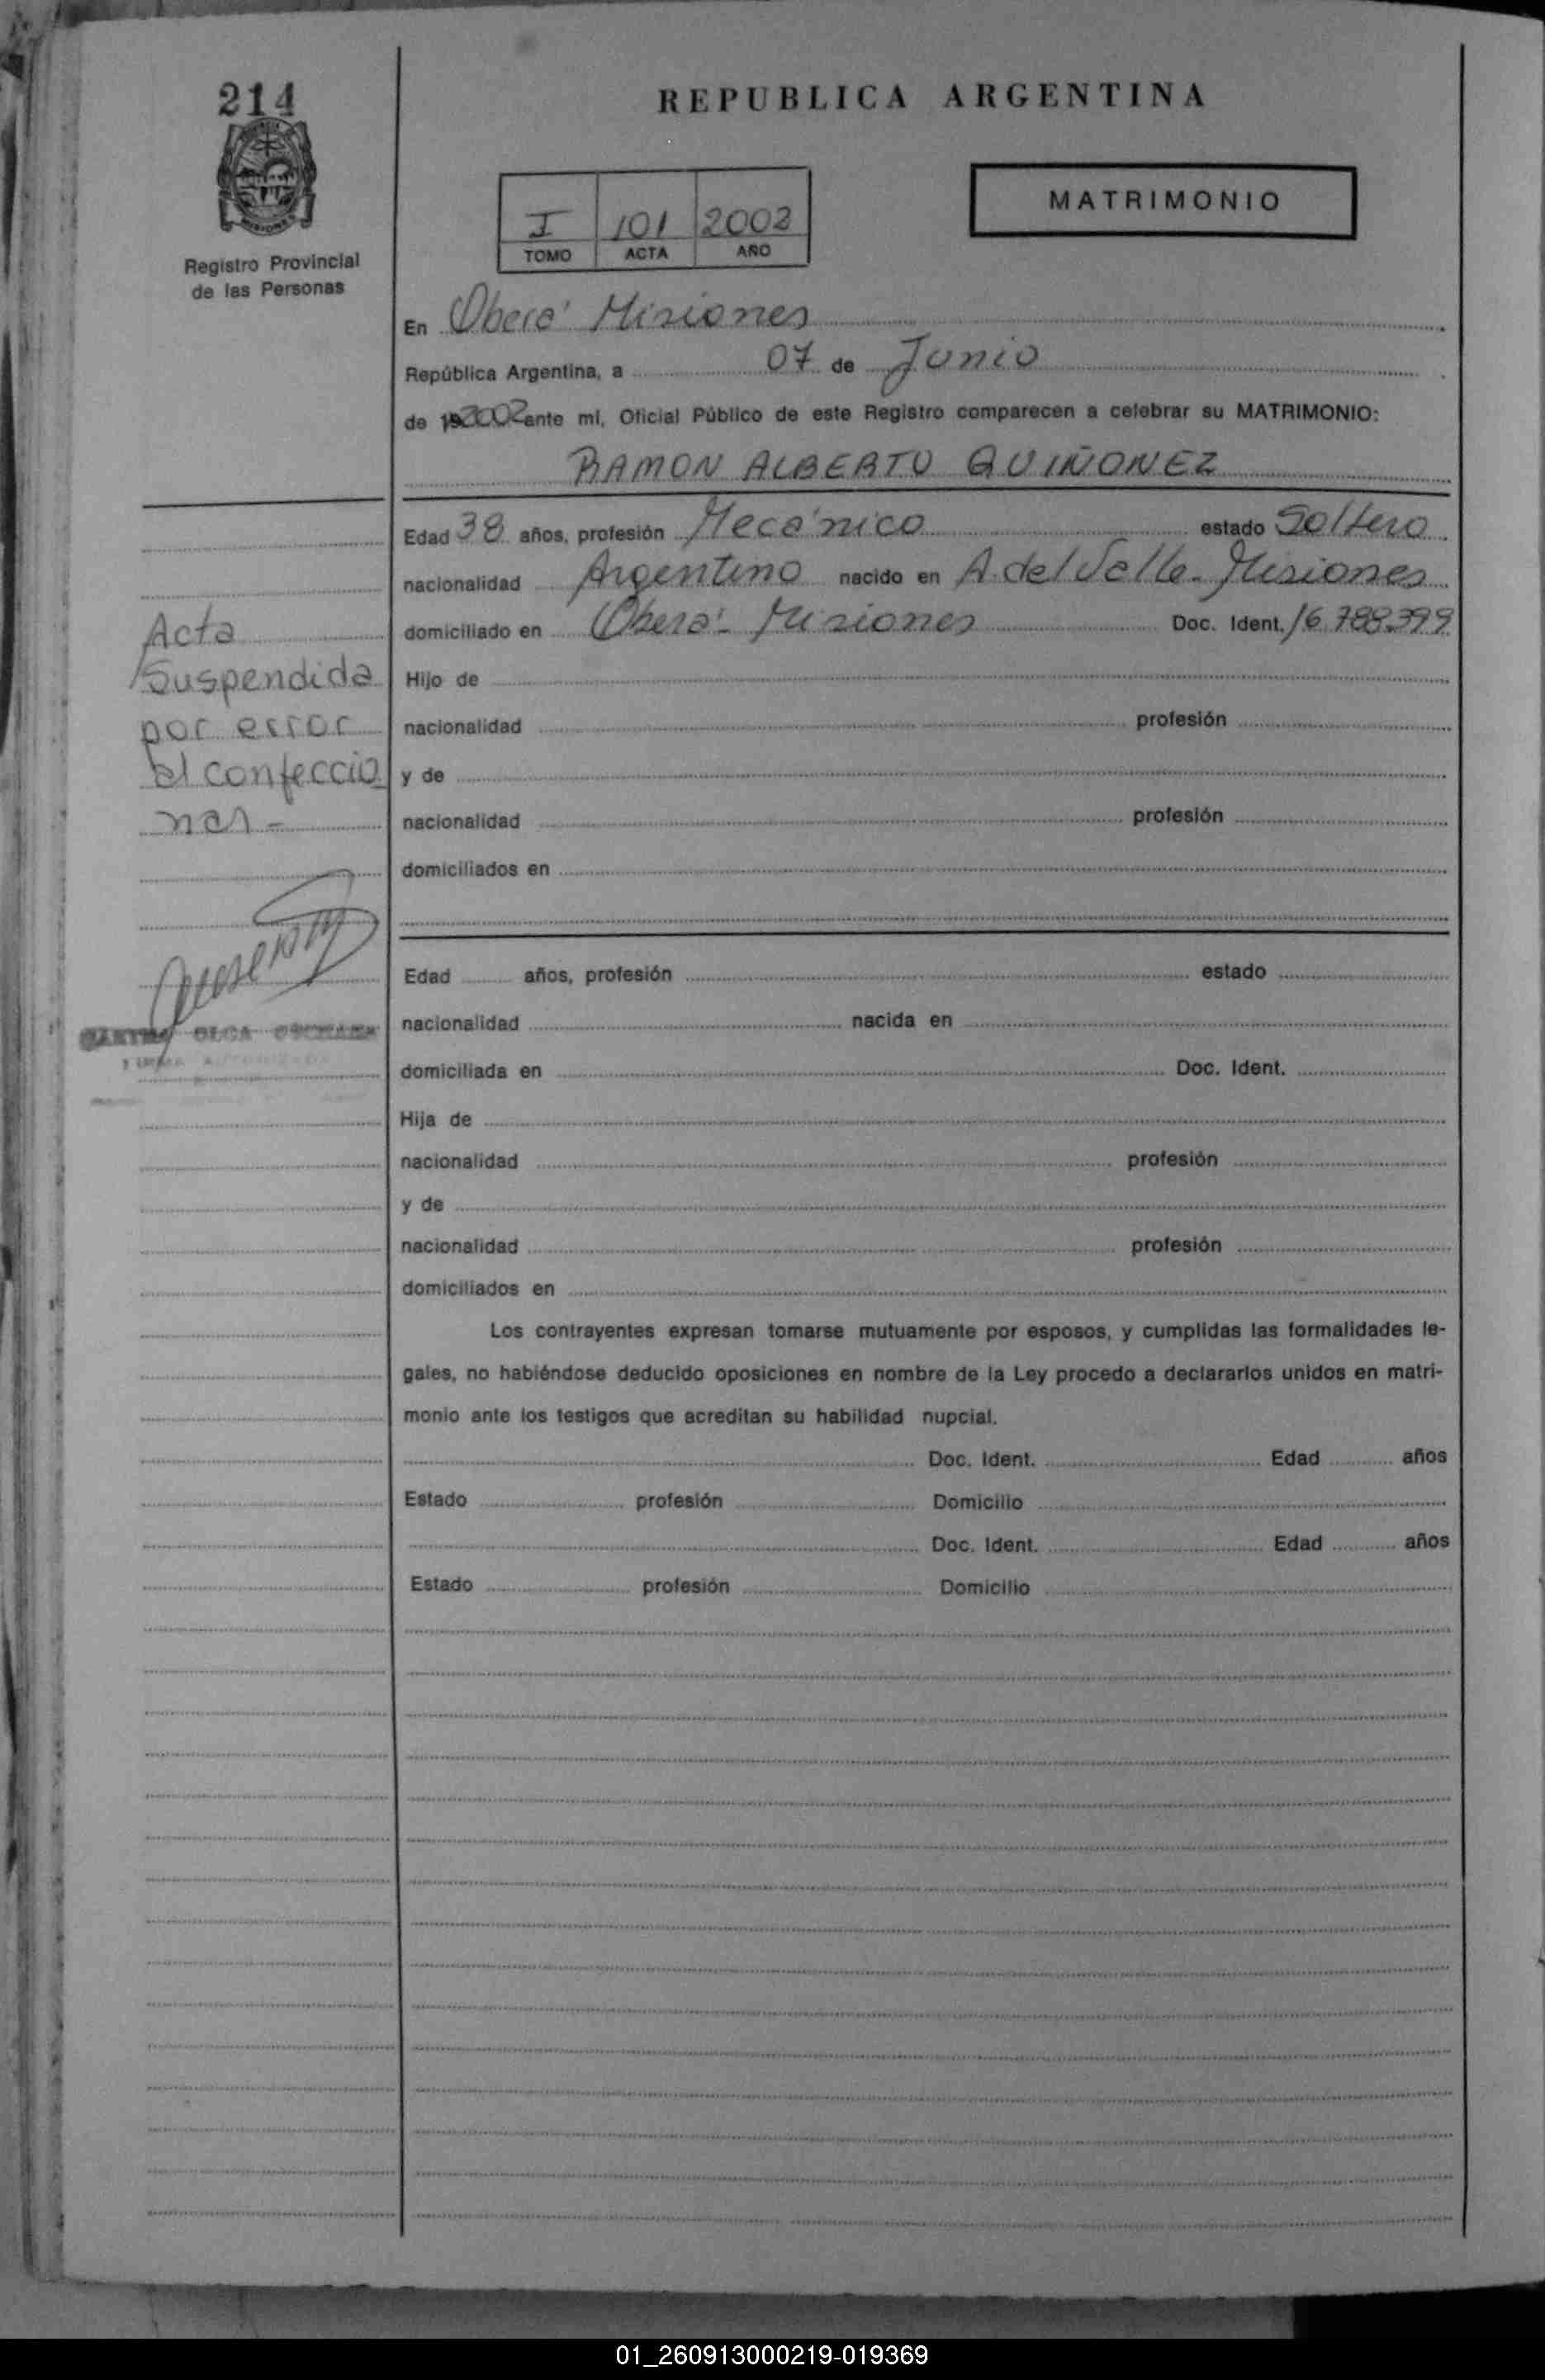 214
REPUBLICA ARGENTINA
MATRIMONIO
I 101 2002
TOMO ACTA AÑO
Registro Provincial
de las Personas
En Oberá Misiones
República Argentina, a 07 de Junio
de 192002 ante mi, Oficial Público de este Registro comparecen a celebrar su MATRIMONIO:
RAMON ALBERTO QUIÑONEZ
Edad 38 años, profesión Mecánico estado Soltero
nacionalidad Argentino nacido en A. del Valle - Misiones
domiciliado en Oberá - Misiones Doc. Ident. 16.788.399
Hijo de
nacionalidad profesión
y de
nacionalidad profesión
domiciliados en
Acta
Suspendida
por error
al confeccio
nar -
OLGA
Edad años, profesión estado
nacionalidad nacida en
domiciliada en Doc. Ident.
Hija de
nacionalidad profesión
y de
nacionalidad profesión
domiciliados en
Los contrayentes expresan tomarse mutuamente por esposos, y cumplidas las formalidades le-
gales, no habiéndose deducido oposiciones en nombre de la Ley procedo a declararlos unidos en matri-
monio ante los testigos que acreditan su habilidad nupcial.
Doc. Ident. Edad años
Estado profesión Domicilio
Doc. Ident. Edad años
Estado profesión Domicilio
01_260913000219-019369